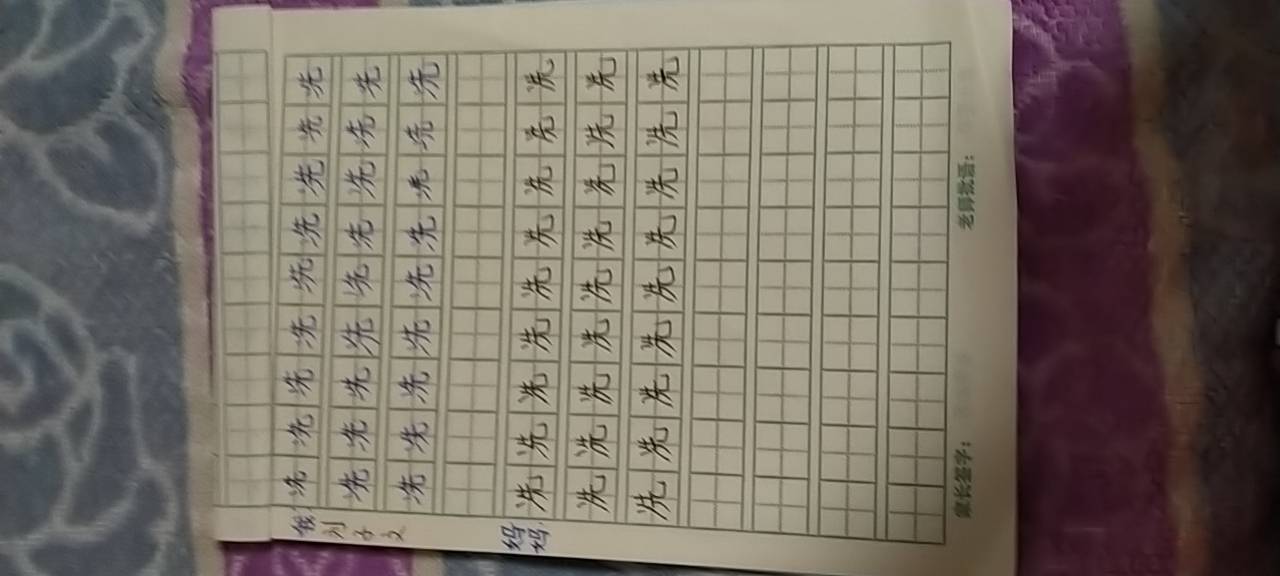 洗洗洗洗洗洗洗洗洗
洗洗洗洗洗洗洗洗洗
洗洗洗洗洗洗洗洗洗
妈妈
洗洗洗洗洗洗洗洗洗
洗洗洗洗洗洗洗洗洗
洗洗洗洗洗洗洗洗洗
家长签字： 老师批语：